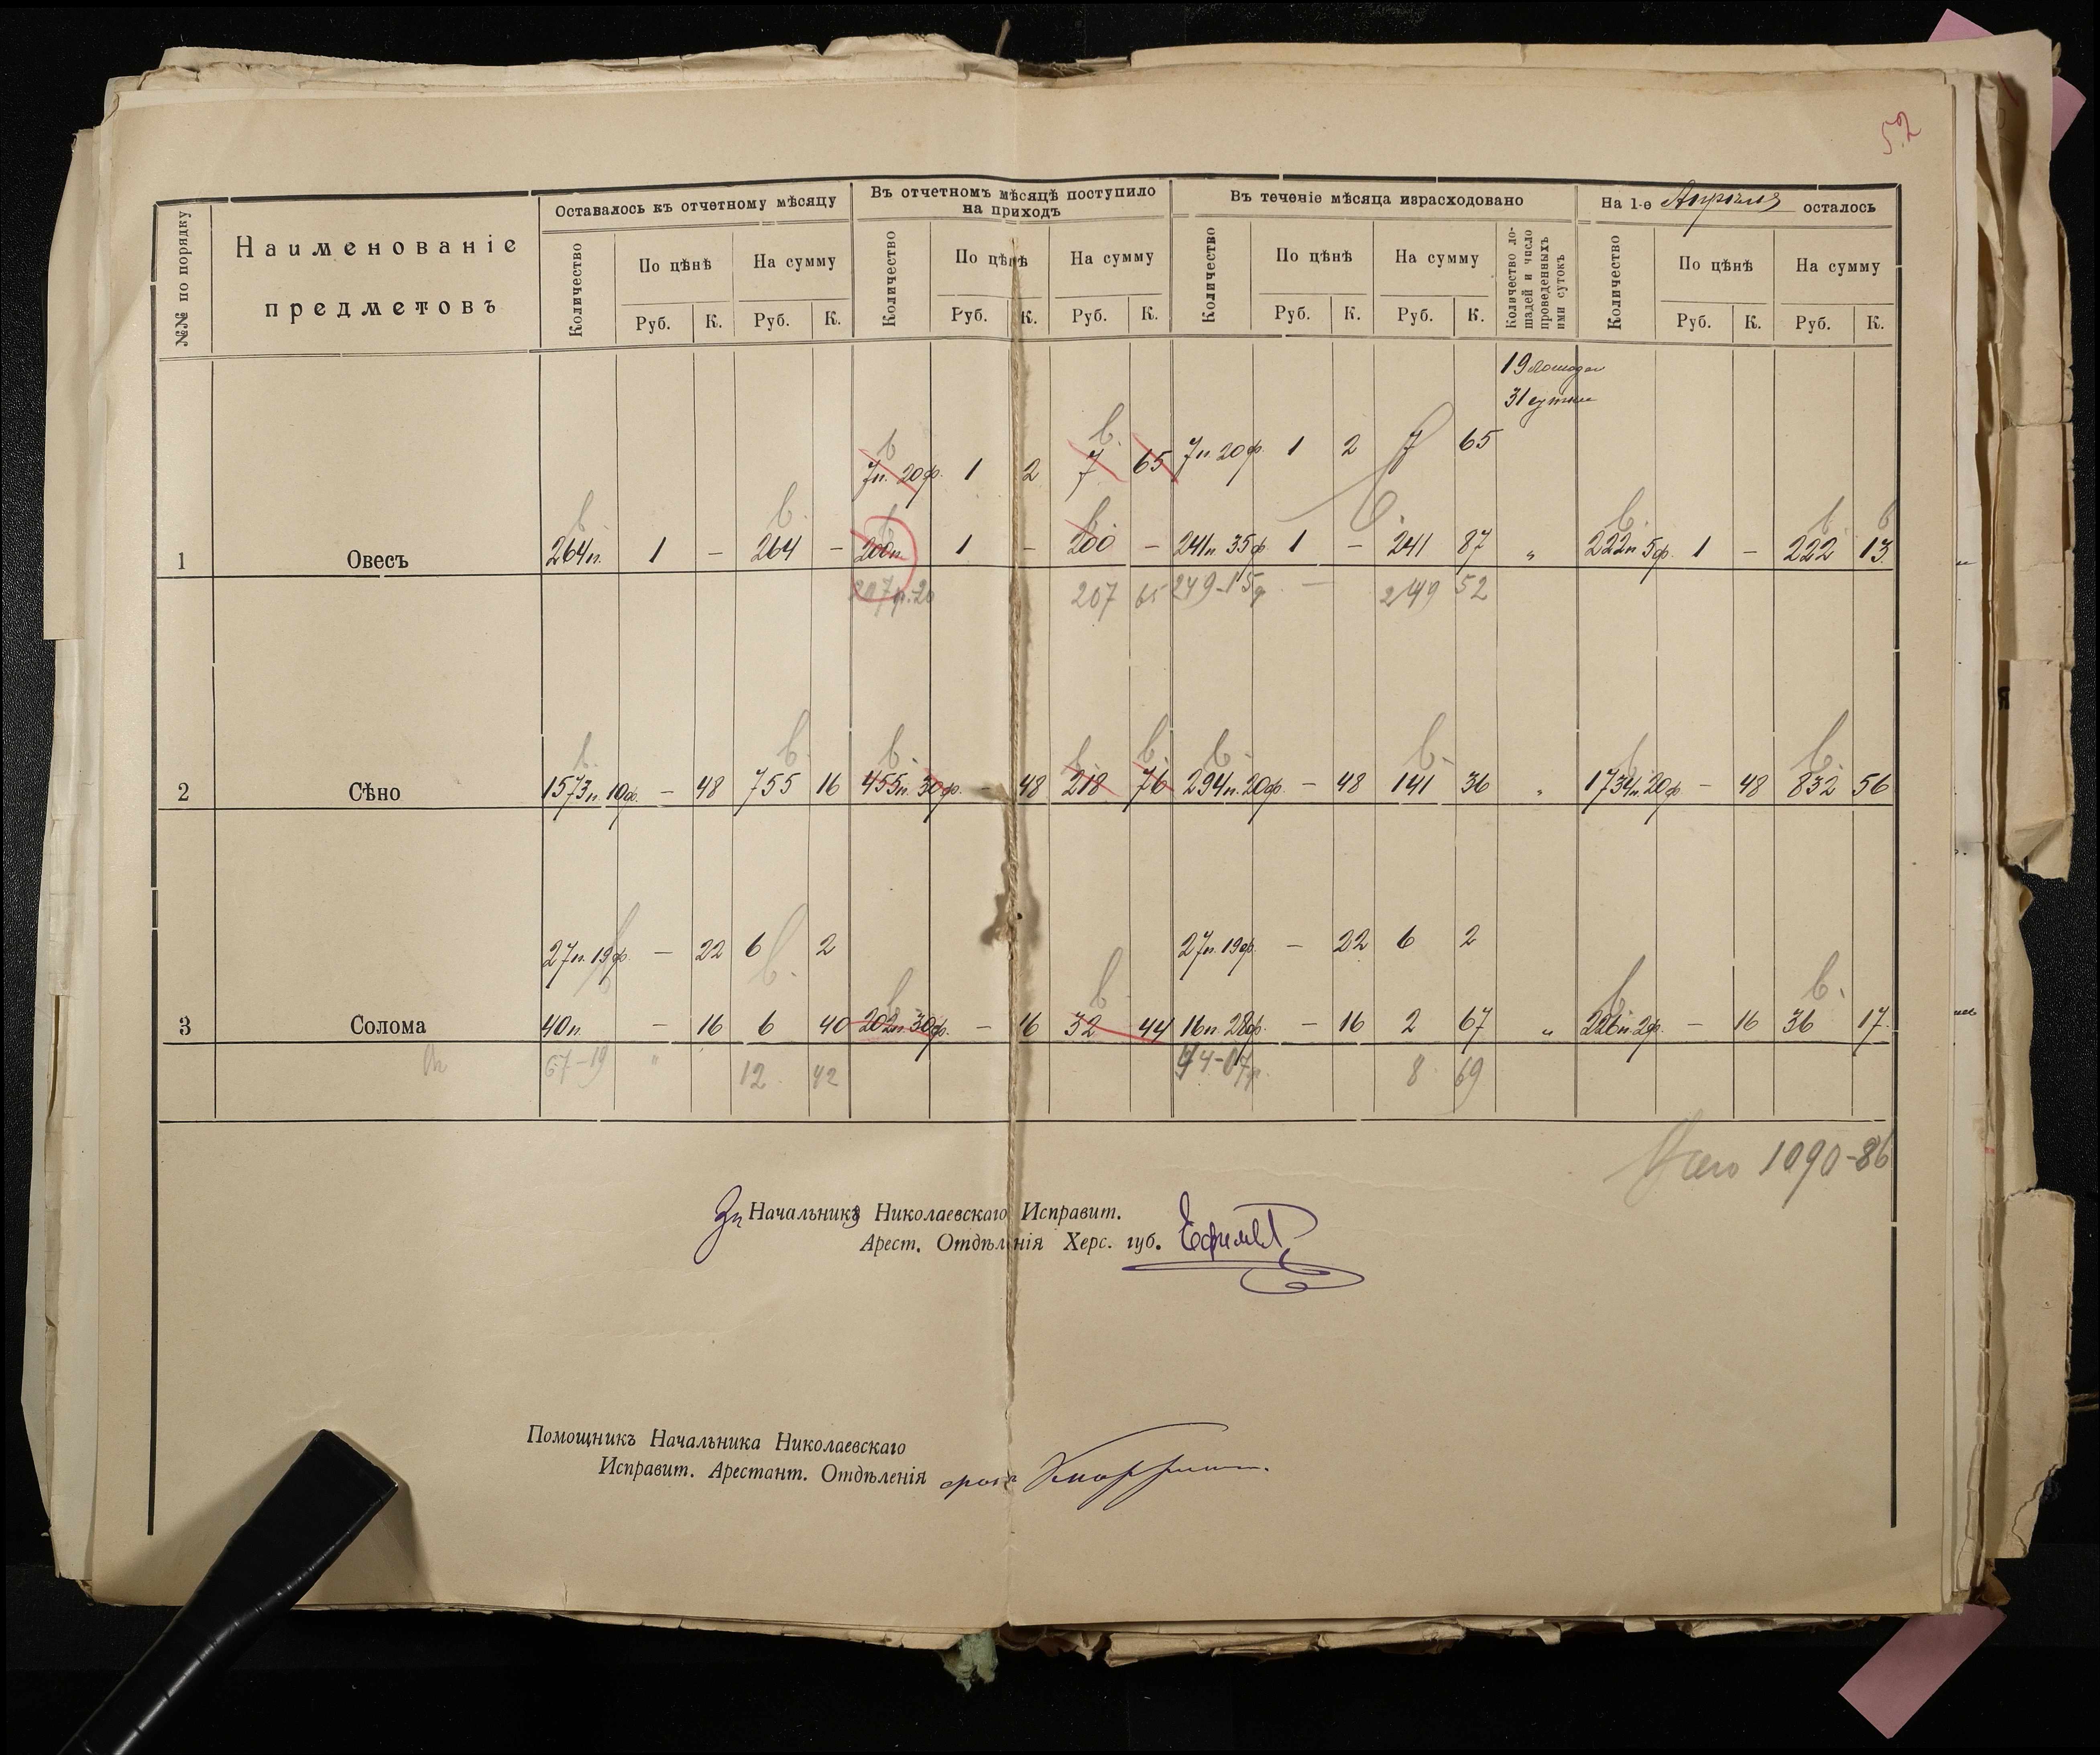 52
№№ по порядку
Наименованіе предметовъ
Оставалось къ отчетному мѣсяцу
Въ отчетномъ мѣсяцѣ поступило
на приходъ
Въ теченіе мѣсяца израсходовано
На 1-е Апрѣля осталось
Количество По цѣнѣ На сумму Количество По цѣнѣ На сумму Количество По цѣнѣ На сумму Количество ло-
шадей и число
проведенныхъ
ими сутокъ
Количество По цѣнѣ На сумму
Руб. К. Руб. К. Руб. К. Руб. К. Руб. К. Руб. К. Руб. К. Руб. К.
19 лошадей
31 сутки
7п. 20ф. 1 2 7 65 7п 20ф. 1 2 7 65
1 Овесъ 264п. 1 – 264 – 200п. 1 – 200 – 241п 35ф 1 – 241 87 „ 222п 5ф. 1 – 222 13.
207п.20 207 65 249-15ф – 249 52
2 Сѣно 1573п. 10ф. – 48 755 16 455п. 30ф. – 48 218 76 294п. 20ф. – 48 141 36 „ 1734п. 20ф. – 48 832 56
27п. 19ф. – 22 6 2 27п. 19ф. – 22 6 2
3 Солома 40п. – 16 6 40 202п. 30ф. – 16 32 44 16п. 28ф. – 16 2 67 „ 226п. 2ф. – 16 36 17.
67-19 " 12 42 44-07ф. 8 69
Итого 1090-86
За Начальника Николаевскаго Исправит.
Арест. Отдѣленія Херс. губ.
Помощникъ Начальника Николаевскаго
Исправит. Арестант. Отдѣленія